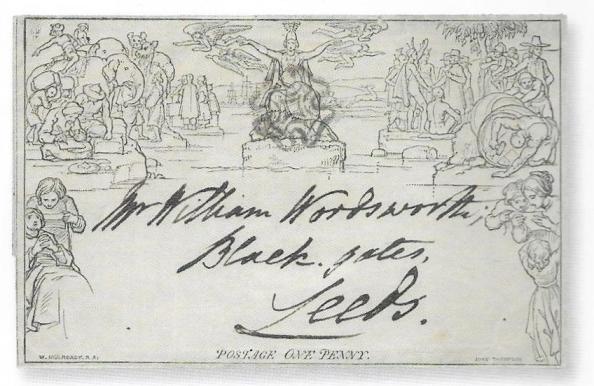 Mr William Wordsworth,
Black-gates,
Leeds.
W. MULREADY. R.A.
POSTAGE ONE PENNY.
JOHN THOMPSON